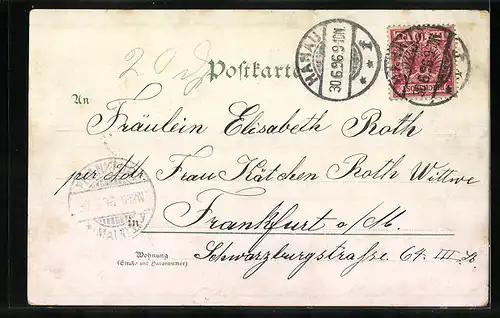 Postkarte
HANAU
30.6.96.9-10N.
1
An
Fräulein Elisabeth Roth
per Adr. Frau Kätchen Roth Wittwe
in
Frankfurt a/M.
Wohnung
(Straße und Hausnummer)
Schwarzburgstrasse 64. III.